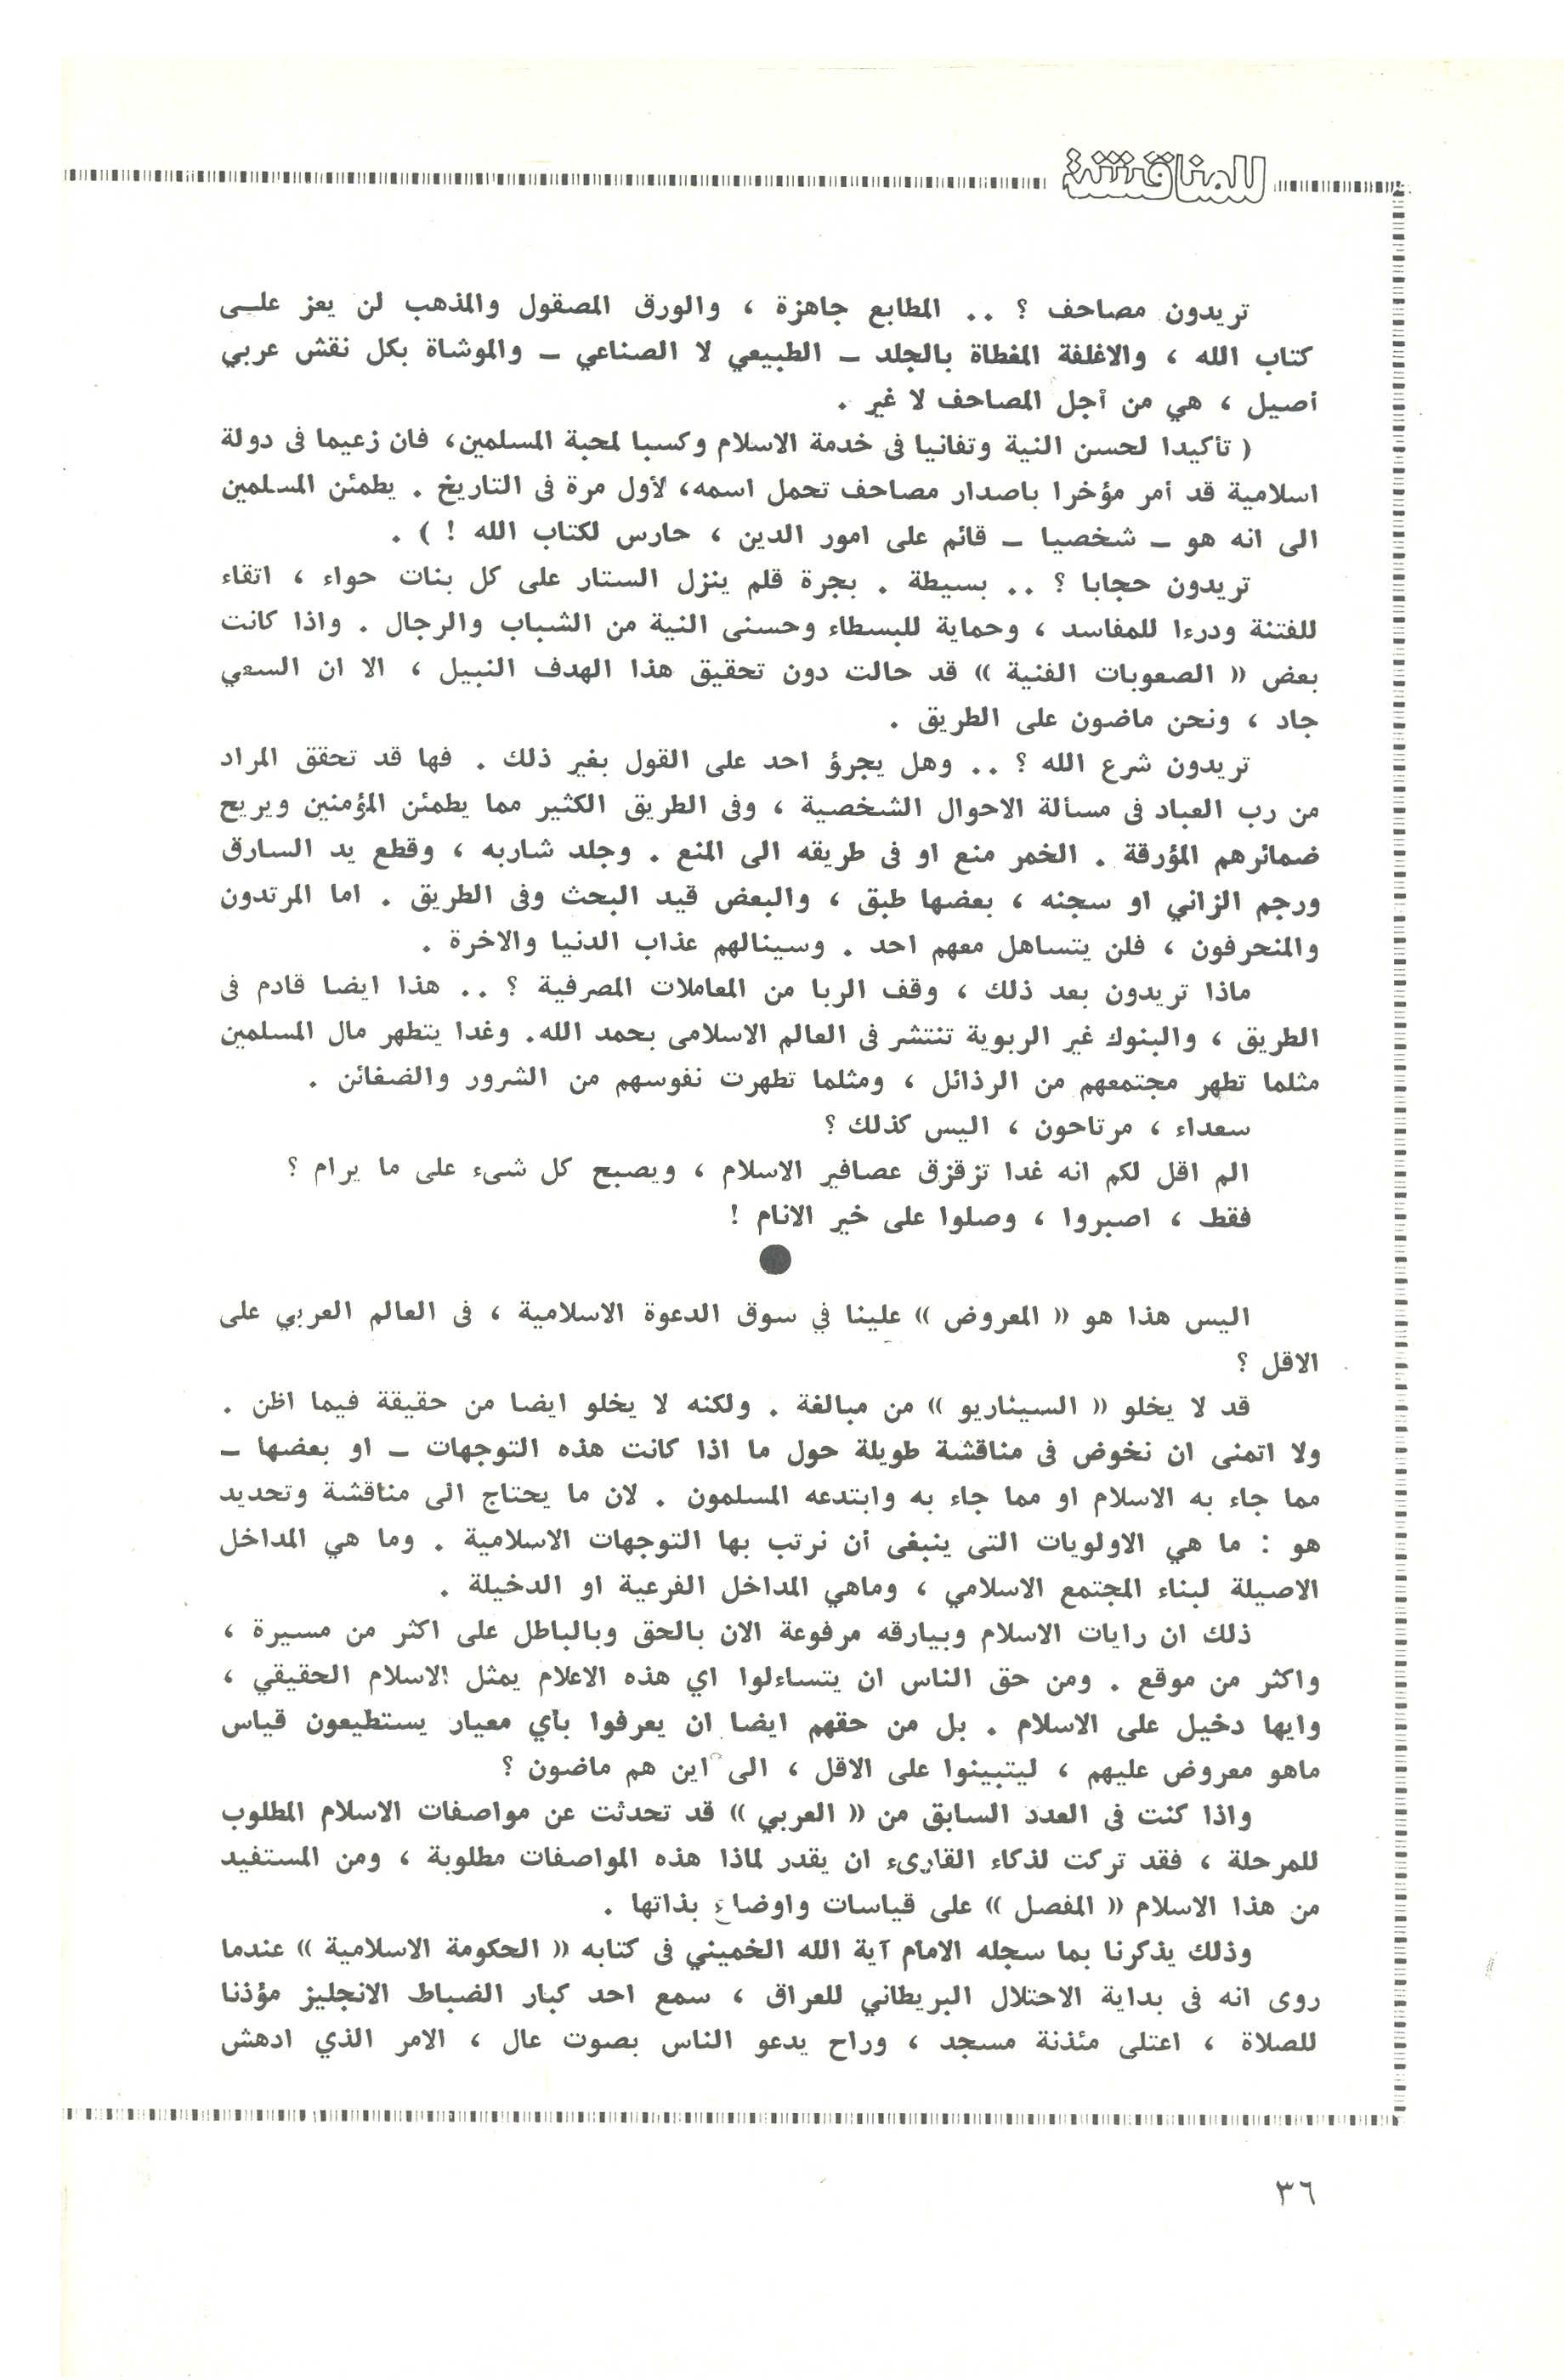 للمناقشة
تريدون مصاحف ؟ .. المطابع جاهزة ، والورق المصقول والمذهب لن يعز علــى
كتاب الله ، والاغلفة المغطاة بالجلد ــ الطبيعي لا الصناعي ــ والموشاة بكل نقش عربي
أصيل ، هي من أجل المصاحف لا غير .
( تأكيدا لحسن النية وتفانيا فى خدمة الاسلام وكسبا لمحبة المسلمين، فان زعيما فى دولة
اسلامية قد أمر مؤخرا باصدار مصاحف تحمل اسمه، لأول مرة فى التاريخ . يطمئن المسلمين
الى انه هو ــ شخصيا ــ قائم على امور الدين ، حارس لكتاب الله ! ) .
تريدون حجابا ؟ .. بسيطة . بجرة قلم ينزل الستار على كل بنات حواء ، اتقاء
للفتنة ودرءا للمفاسد ، وحماية للبسطاء وحسنى النية من الشباب والرجال . واذا كانت
بعض « الصعوبات الفنية » قد حالت دون تحقيق هذا الهدف النبيل ، الا ان السعي
جاد ، ونحن ماضون على الطريق .
تريدون شرع الله ؟ .. وهل يجرؤ احد على القول بغير ذلك . فها قد تحقق المراد
من رب العباد فى مسألة الاحوال الشخصية ، وفى الطريق الكثير مما يطمئن المؤمنين ويريح
ضمائرهم المؤرقة . الخمر منع او فى طريقه الى المنع . وجلد شاربه ، وقطع يد السارق
ورجم الزاني او سجنه ، بعضها طبق ، والبعض قيد البحث وفى الطريق . اما المرتدون
والمنحرفون ، فلن يتساهل معهم احد . وسينالهم عذاب الدنيا والاخرة .
ماذا تريدون بعد ذلك ، وقف الربا من المعاملات المصرفية ؟ .. هذا ايضا قادم فى
الطريق ، والبنوك غير الربوية تنتشر فى العالم الاسلامى بحمد الله. وغدا يتطهر مال المسلمين
مثلما تطهر مجتمعهم من الرذائل ، ومثلما تطهرت نفوسهم من الشرور والضغائن .
سعداء ، مرتاحون ، اليس كذلك ؟
الم اقل لكم انه غدا تزقزق عصافير الاسلام ، ويصبح كل شىء على ما يرام ؟
فقط ، اصبروا ، وصلوا على خير الانام !
اليس هذا هو « المعروض » علينا في سوق الدعوة الاسلامية ، فى العالم العربي على
الاقل ؟
قد لا يخلو « السيناريو » من مبالغة . ولكنه لا يخلو ايضا من حقيقة فيما اظن .
ولا اتمنى ان نخوض فى مناقشة طويلة حول ما اذا كانت هذه التوجهات ــ او بعضها ــ
مما جاء به الاسلام او مما جاء به وابتدعه المسلمون . لان ما يحتاج الى مناقشة وتحديد
هو : ما هي الاولويات التى ينبغى أن نرتب بها التوجهات الاسلامية . وما هي المداخل
الاصيلة لبناء المجتمع الاسلامي ، وماهي المداخل الفرعية او الدخيلة .
ذلك ان رايات الاسلام وبيارقه مرفوعة الان بالحق وبالباطل على اكثر من مسيرة ،
واكثر من موقع . ومن حق الناس ان يتساءلوا اي هذه الاعلام يمثل الاسلام الحقيقي ،
وايها دخيل على الاسلام . بل من حقهم ايضا ان يعرفوا بأي معيار يستطيعون قياس
ماهو معروض عليهم ، ليتبينوا على الاقل ، الى اين هم ماضون ؟
واذا كنت فى العدد السابق من « العربي » قد تحدثت عن مواصفات الاسلام المطلوب
للمرحلة ، فقد تركت لذكاء القارىء ان يقدر لماذا هذه المواصفات مطلوبة ، ومن المستفيد
من هذا الاسلام « المفصل » على قياسات واوضاع بذاتها .
وذلك يذكرنا بما سجله الامام آية الله الخميني فى كتابه « الحكومة الاسلامية » عندما
روى انه فى بداية الاحتلال البريطاني للعراق ، سمع احد كبار الضباط الانجليز مؤذنا
للصلاة ، اعتلى مئذنة مسجد ، وراح يدعو الناس بصوت عال ، الامر الذي ادهش
٣٦